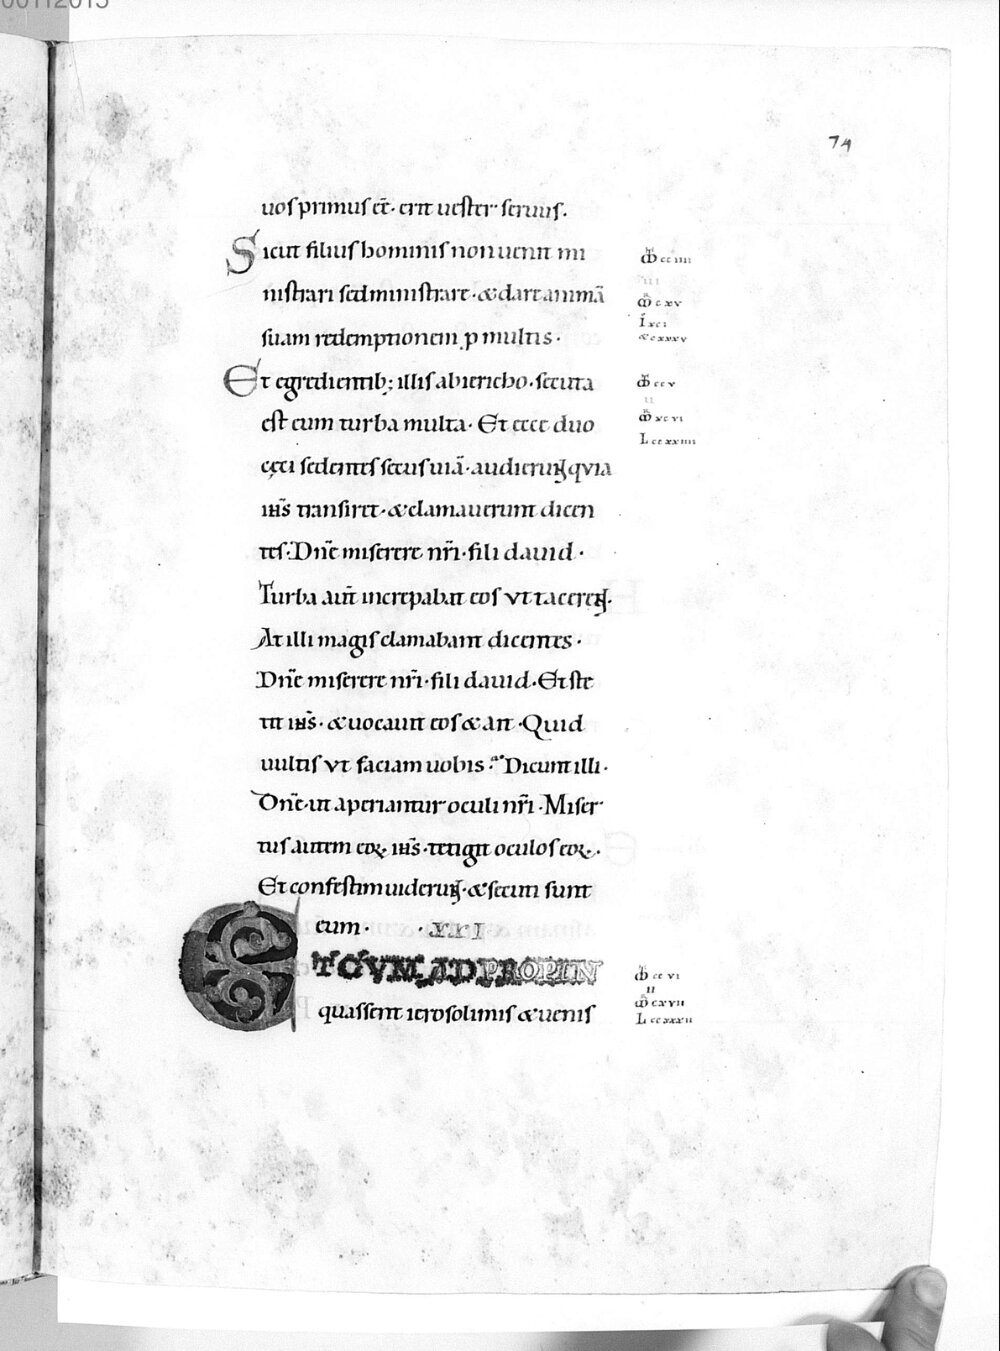 00112015
74
uos primus e͞t· erit uester seruus.
Sicut filius hominis non uenit mi
nistrari sed ministrare· & dare animā
suam redemptionem p multis·
Et egredientib; illis abiericho· secuta
est eum turba multa· Et ecce duo
cęci sedentes secus uiā· audierunt qvia
ih͞s transiret· & clamauerunt dicen
tes· Dn͞e miserere nr͞i· fili dauid·
Turba aut͞ increpabat eos vt tacerent·
At illi magis clamabant dicentes·
Dn͞e miserere nr͞i· fili dauid· Et ste
tit ih͞s· & uocauit eos & ait· Quid
uultis vt faciam uobis? Dicunt illi·
Dn͞e· ut aperiantur oculi nr͞i· Miser
tus autem eoꝝ ih͞s· tetigit oculos eoꝝ·
Et confestim uiderunt· & secuti sunt
eum· ·XXI
ET CVM ADPROPIN
quassent ierosolimis & uenis
cc iiii
iii
c xv
I xci
cc v
ii
xc vi
L cc xx iiii
cc vi
ii
c xvii
L cc xxx ii